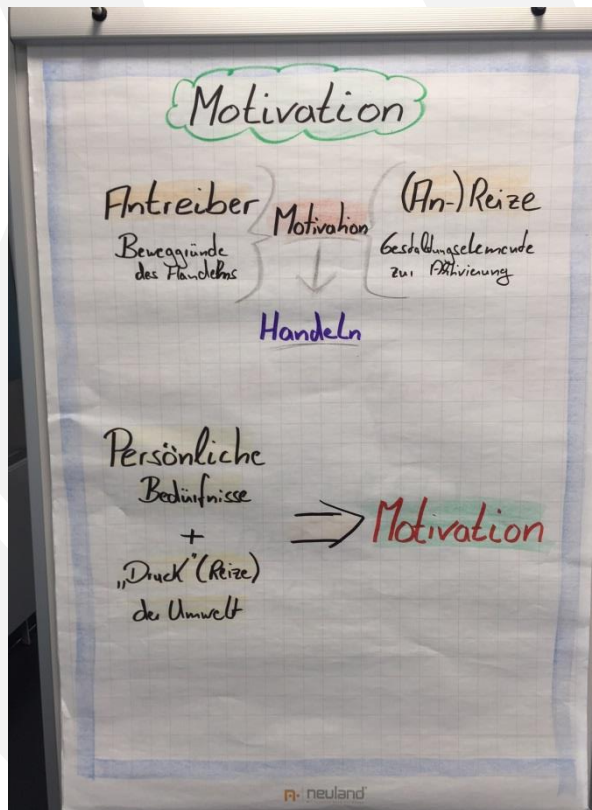 Motivation
Antreiber
Beweggründe
des Handelns
Motivation
(An-)Reize
Gestaldungselemende
zur Aktivierung
Handeln
Persönliche
Bedürfnisse
+
„Druck“ (Reize)
der Umwelt
Motivation
n. neuland